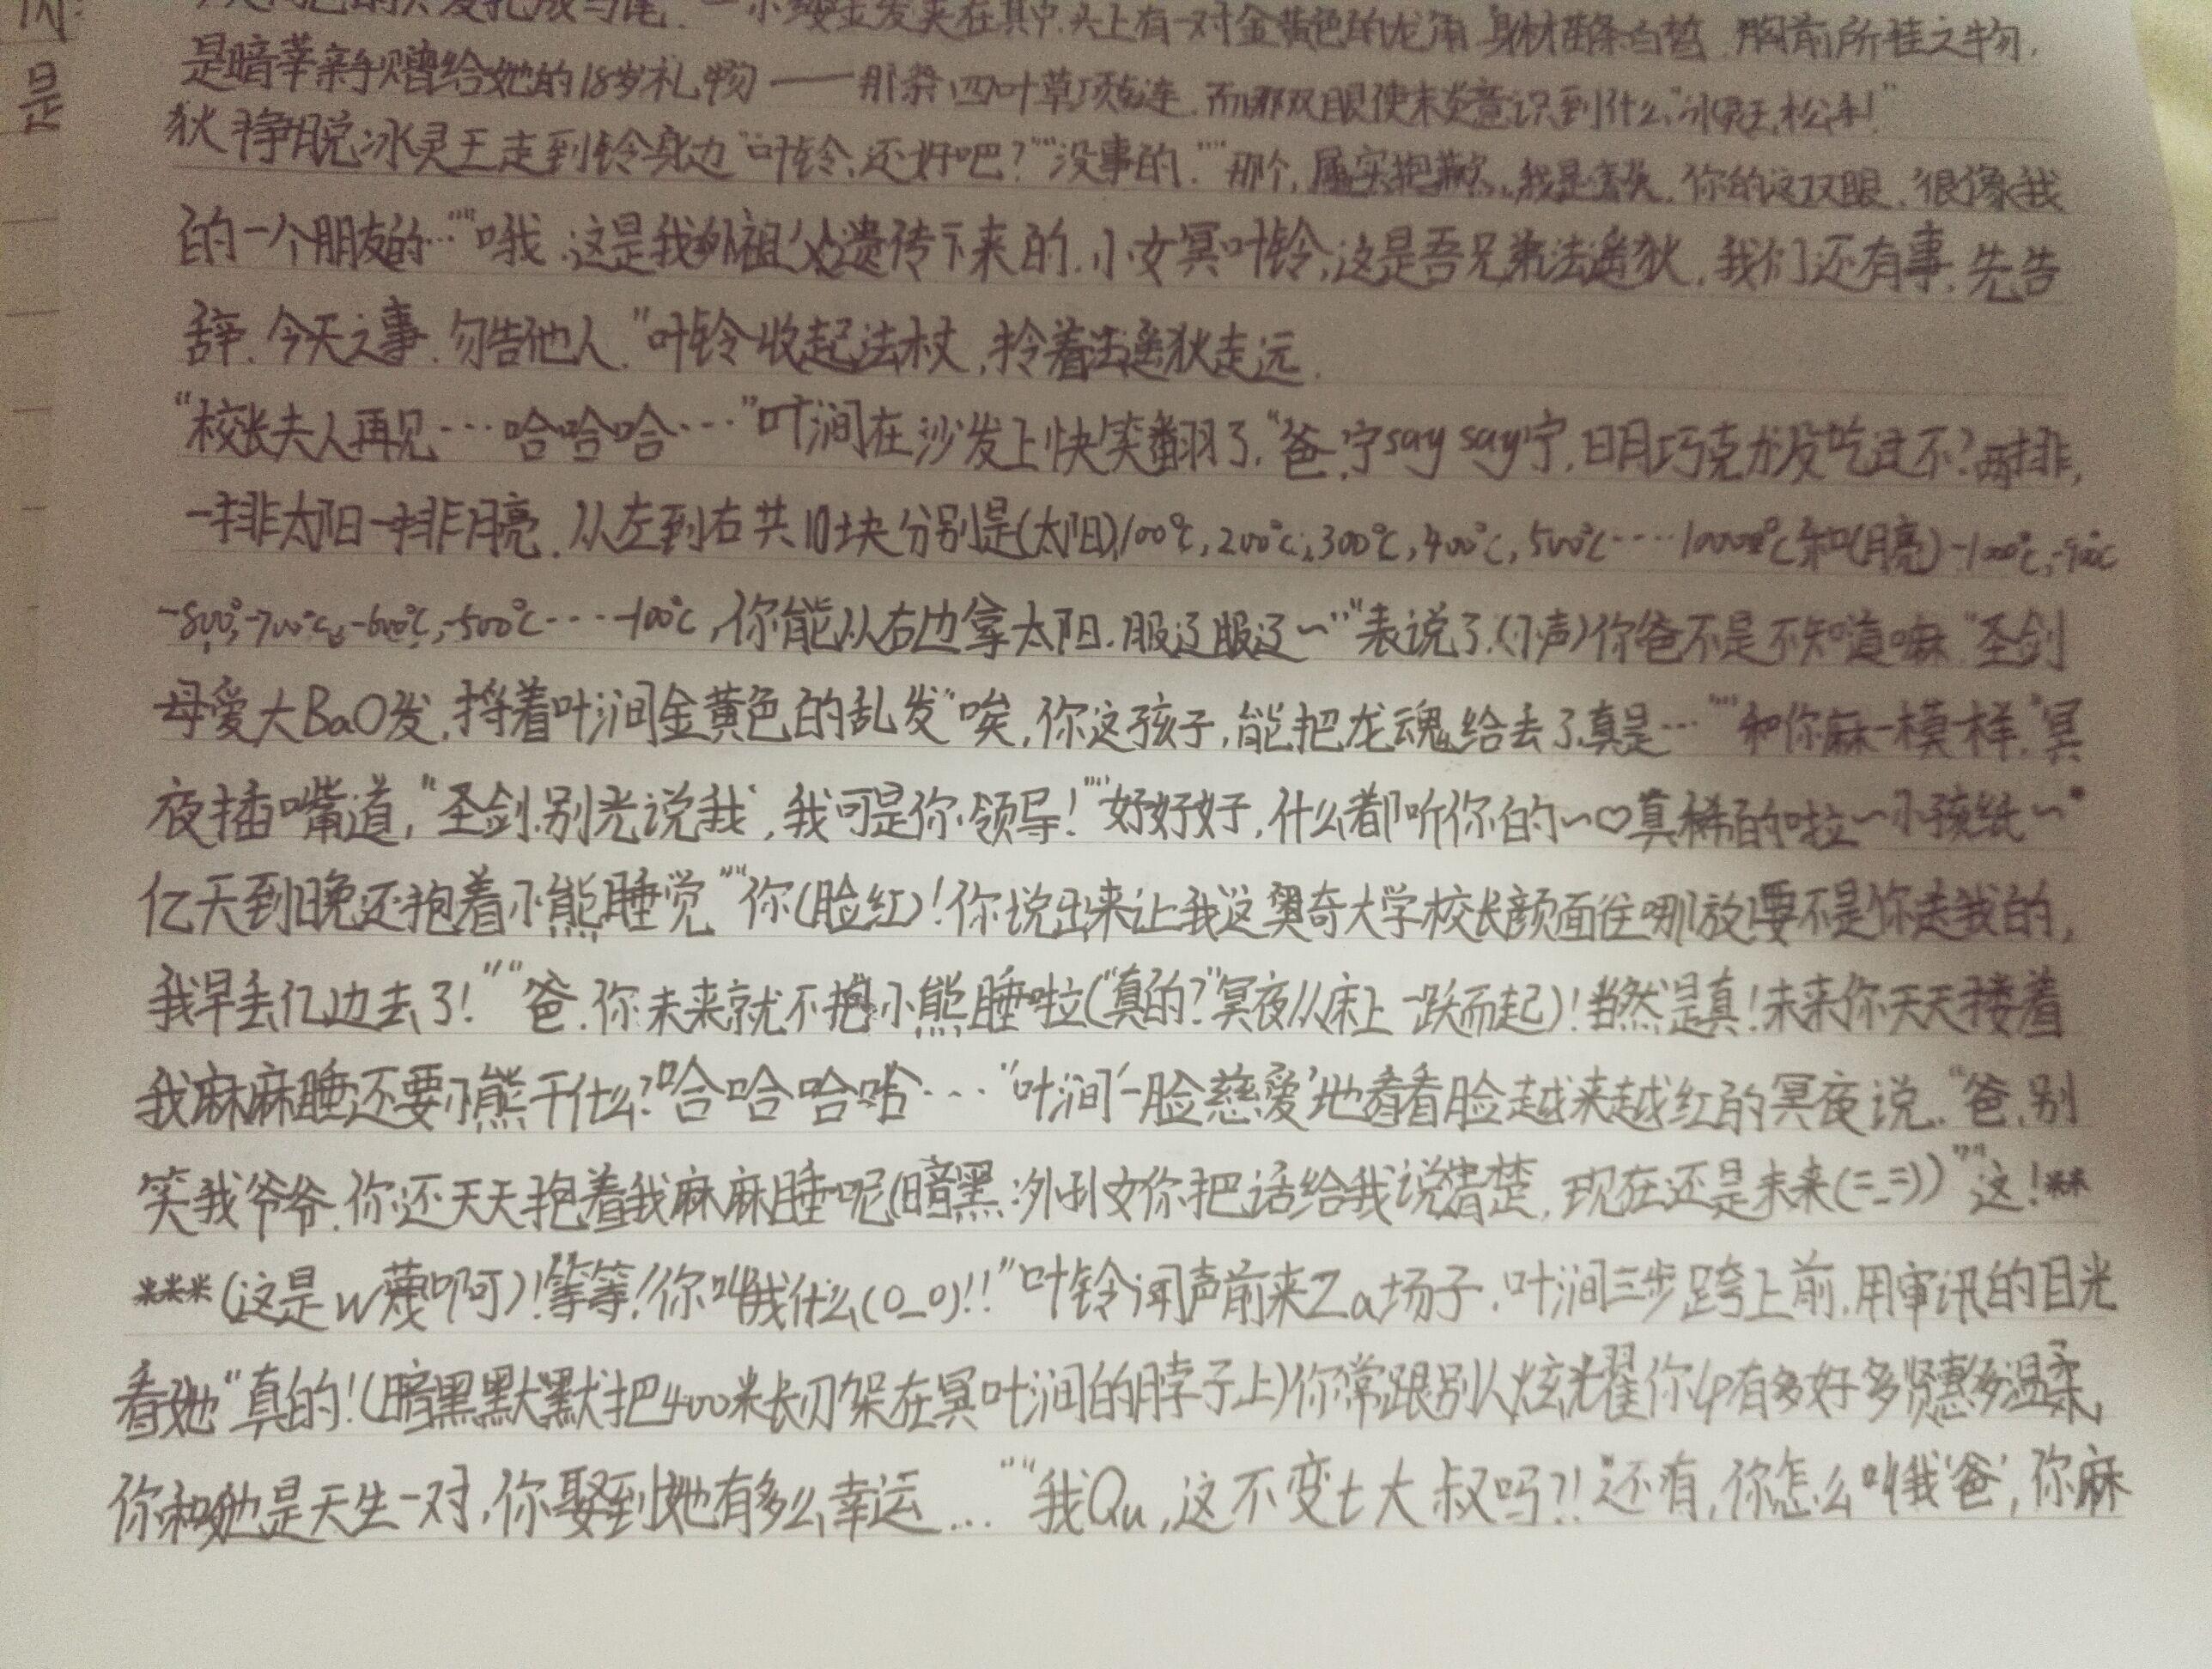 头上有一对金黄色的龙角.身材苗条白皙.胸前所挂之物.
是暗莘亲手赠给她的18岁礼物——那条四叶草项链.而那双眼使末炎意识到什么"冰灵王,松手!"
狄挣脱冰灵王走到铃身边"叶铃,还好吧?""没事的.""那个,属实抱歉,我是末炎.你的这双眼.很像我
的一个朋友的…""哦.这是我外祖父处遗传下来的.小女冥叶铃,这是吾兄弟法遥狄.我们还有事.先告
辞.今天之事.勿告他人."叶铃收起法杖,拎着法遥狄走远.
"校长夫人再见…哈哈哈…"叶涧在沙发上快笑翻了."爸,宁say say宁,日月巧克力没吃过不?两排,
一排太阳一排月亮.从左到右共10块分别是(太阳)100℃,200℃,300℃,400℃,500℃····1000℃和(月亮)-1000℃,-900℃
-800℃,-700℃,-600℃,-500℃····-100℃,你能从右边拿太阳.服辽服辽~""表说了.(小声)你爸不是不知道嘛"圣剑
母爱大BaO发,捋着叶涧金黄色的乱发"唉,你这孩子,能把龙魂给丢了.真是…""和你麻一模一样."冥
夜插嘴道,"圣剑.别光说我,我可是你领导!""好好好,什么都听你的~♡真稀的啦~小孩纸~"
亿天到晚还抱着小熊睡觉""你(脸红)!你说出来让我这奥奇大学校长颜面往哪放!要不是你送我的,
我早丢亿边去了!""爸.你未来就不抱小熊睡啦("真的?"冥夜从床上一跃而起)!当然是真!未来你天天搂着
我麻麻睡还要小熊干什么?哈哈哈哈…"叶涧'一脸慈爱'地看着脸越来越红的冥夜说."爸.别
笑我爷爷.你还天天抱着我麻麻睡呢(暗黑:外刊文你把话给我说清楚,现在还是未来(=_=))""这!**
***(这是w蔑啊)!等等!你叫我什么(O_O)!!"叶铃闻声前来Za场子.叶涧三步跨上前.用审讯的目光
看她"真的!(暗黑默默把400米长刀架在冥叶涧的脖子上)你常跟别人炫耀你lp有多好多贤惠多温柔,
你和她是天生一对,你娶到她有多么幸运…""我Qu,这不变t大叔吗?!还有,你怎么叫我'爸',你麻